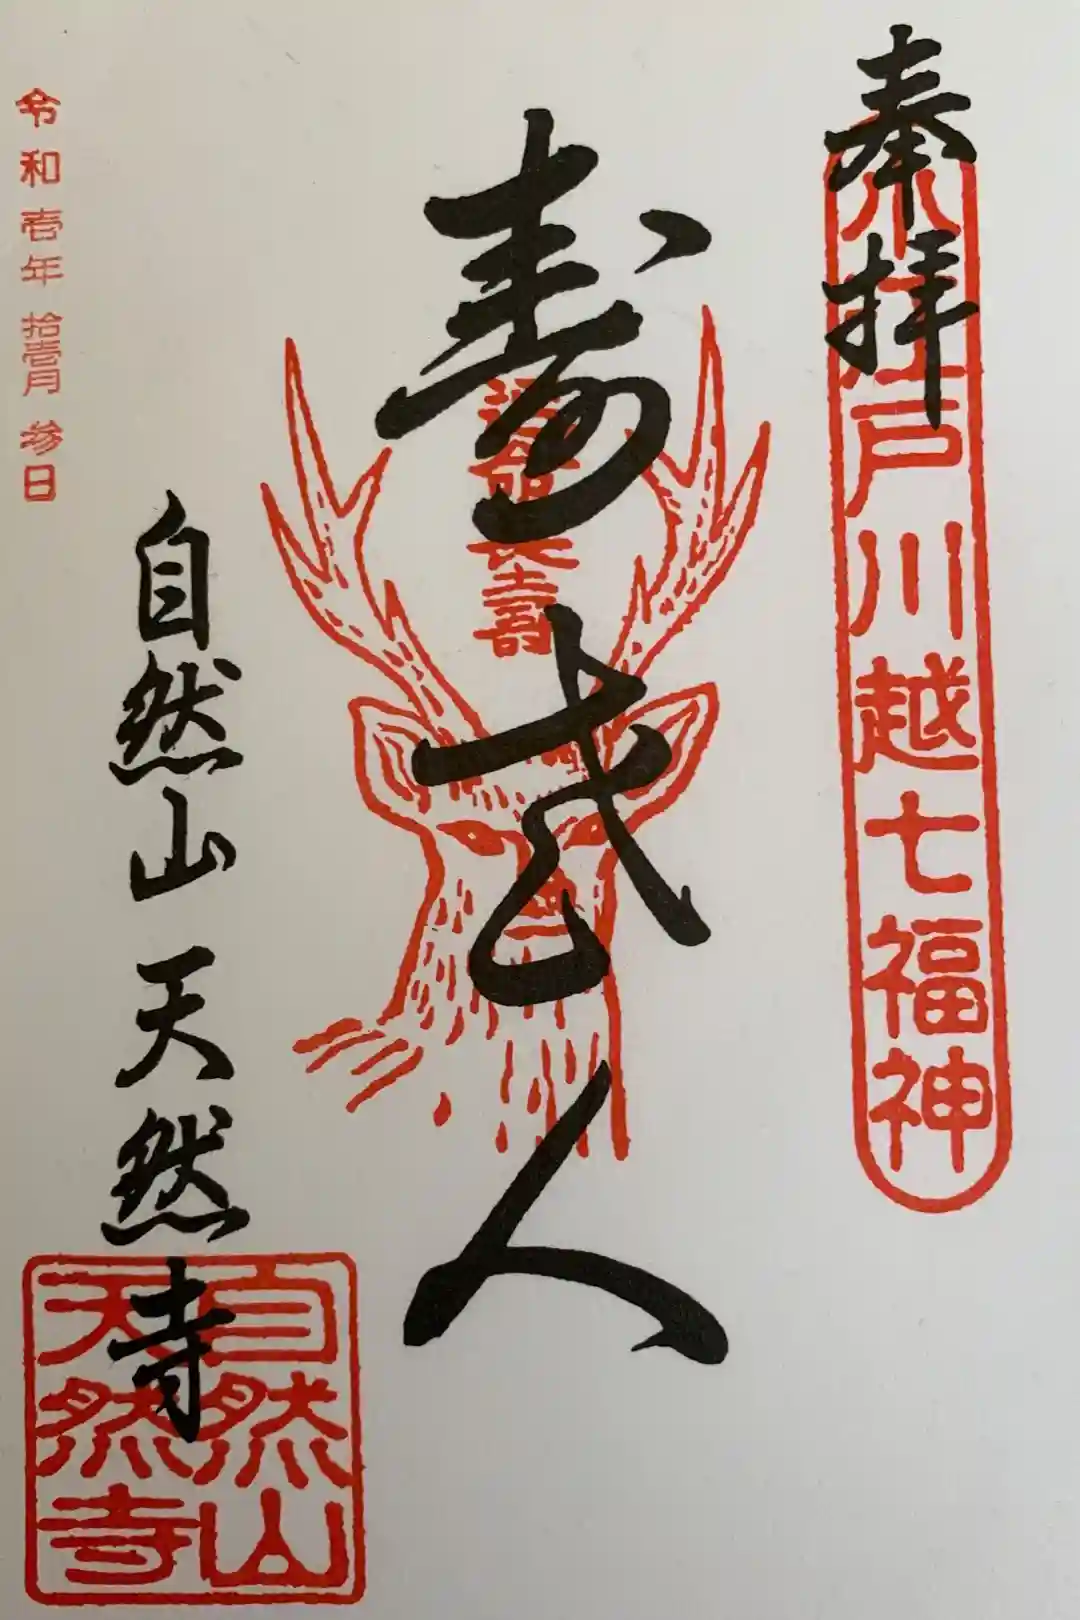 奉拝
小江戸川越七福神
寿老人
延命長寿
自然山 天然寺
自然山
天然寺
令和壱年 拾壱月 参日